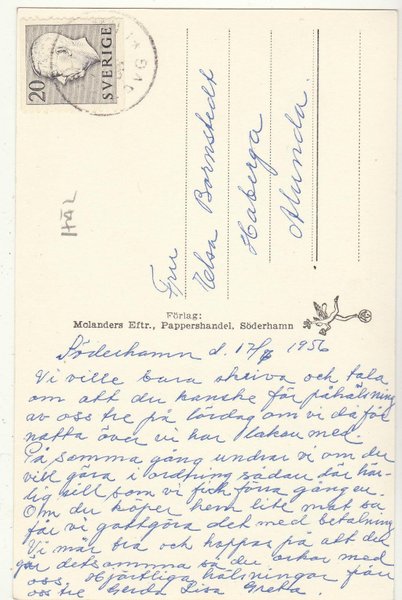 20
SVERIGE
Fru
Elsa Bornstedt
Haberga
Alunda.
Förlag:
Molanders Eftr., Pappershandel, Söderhamn
Söderhamn d. 17/7 1956
Vi ville bara skriva och tala
om att du kanske får påhälsning
av oss tre på lördag om vi då får
natta över vi har lakan med.
På samma gång undrar vi om du
vill göra i ordning sådan där här-
lig sill som vi fick förra gången.
Om du köper hem lite mat så
får vi gottgöra det med betalning
Vi mår bra och hoppas på att du
gör detsamma så du orkar med
oss. Hjärtliga hälsningar från
oss tre Gerda Lisa Greta.